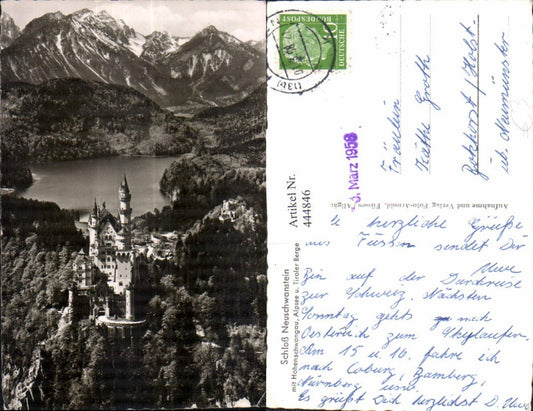 DEUTSCHE
BUNDESPOST
10
(13b)
6. März 1958
Fräulein
Käthe Groth
Bokhorst / Holst.
üb. Neumünster
Artikel Nr.
444846
Schloß Neuschwanstein
mit Hohenschwangau, Alpsee u. Tiroler Berge
Aufnahme und Verlag Foto-Arnold, Füssen (Allgäu
herzliche Grüße
aus Füssen sendet Dir
Uwe
Bin auf der Durchreise
zur Schweiz. Nächsten
Sonntag gehts nach
Österreich zum Skilaufen.
Am 15 u. 16. fahre ich
nach Coburg, Bamberg,
Nürnberg
Es grüßt Dich herzlichst D. Uwe